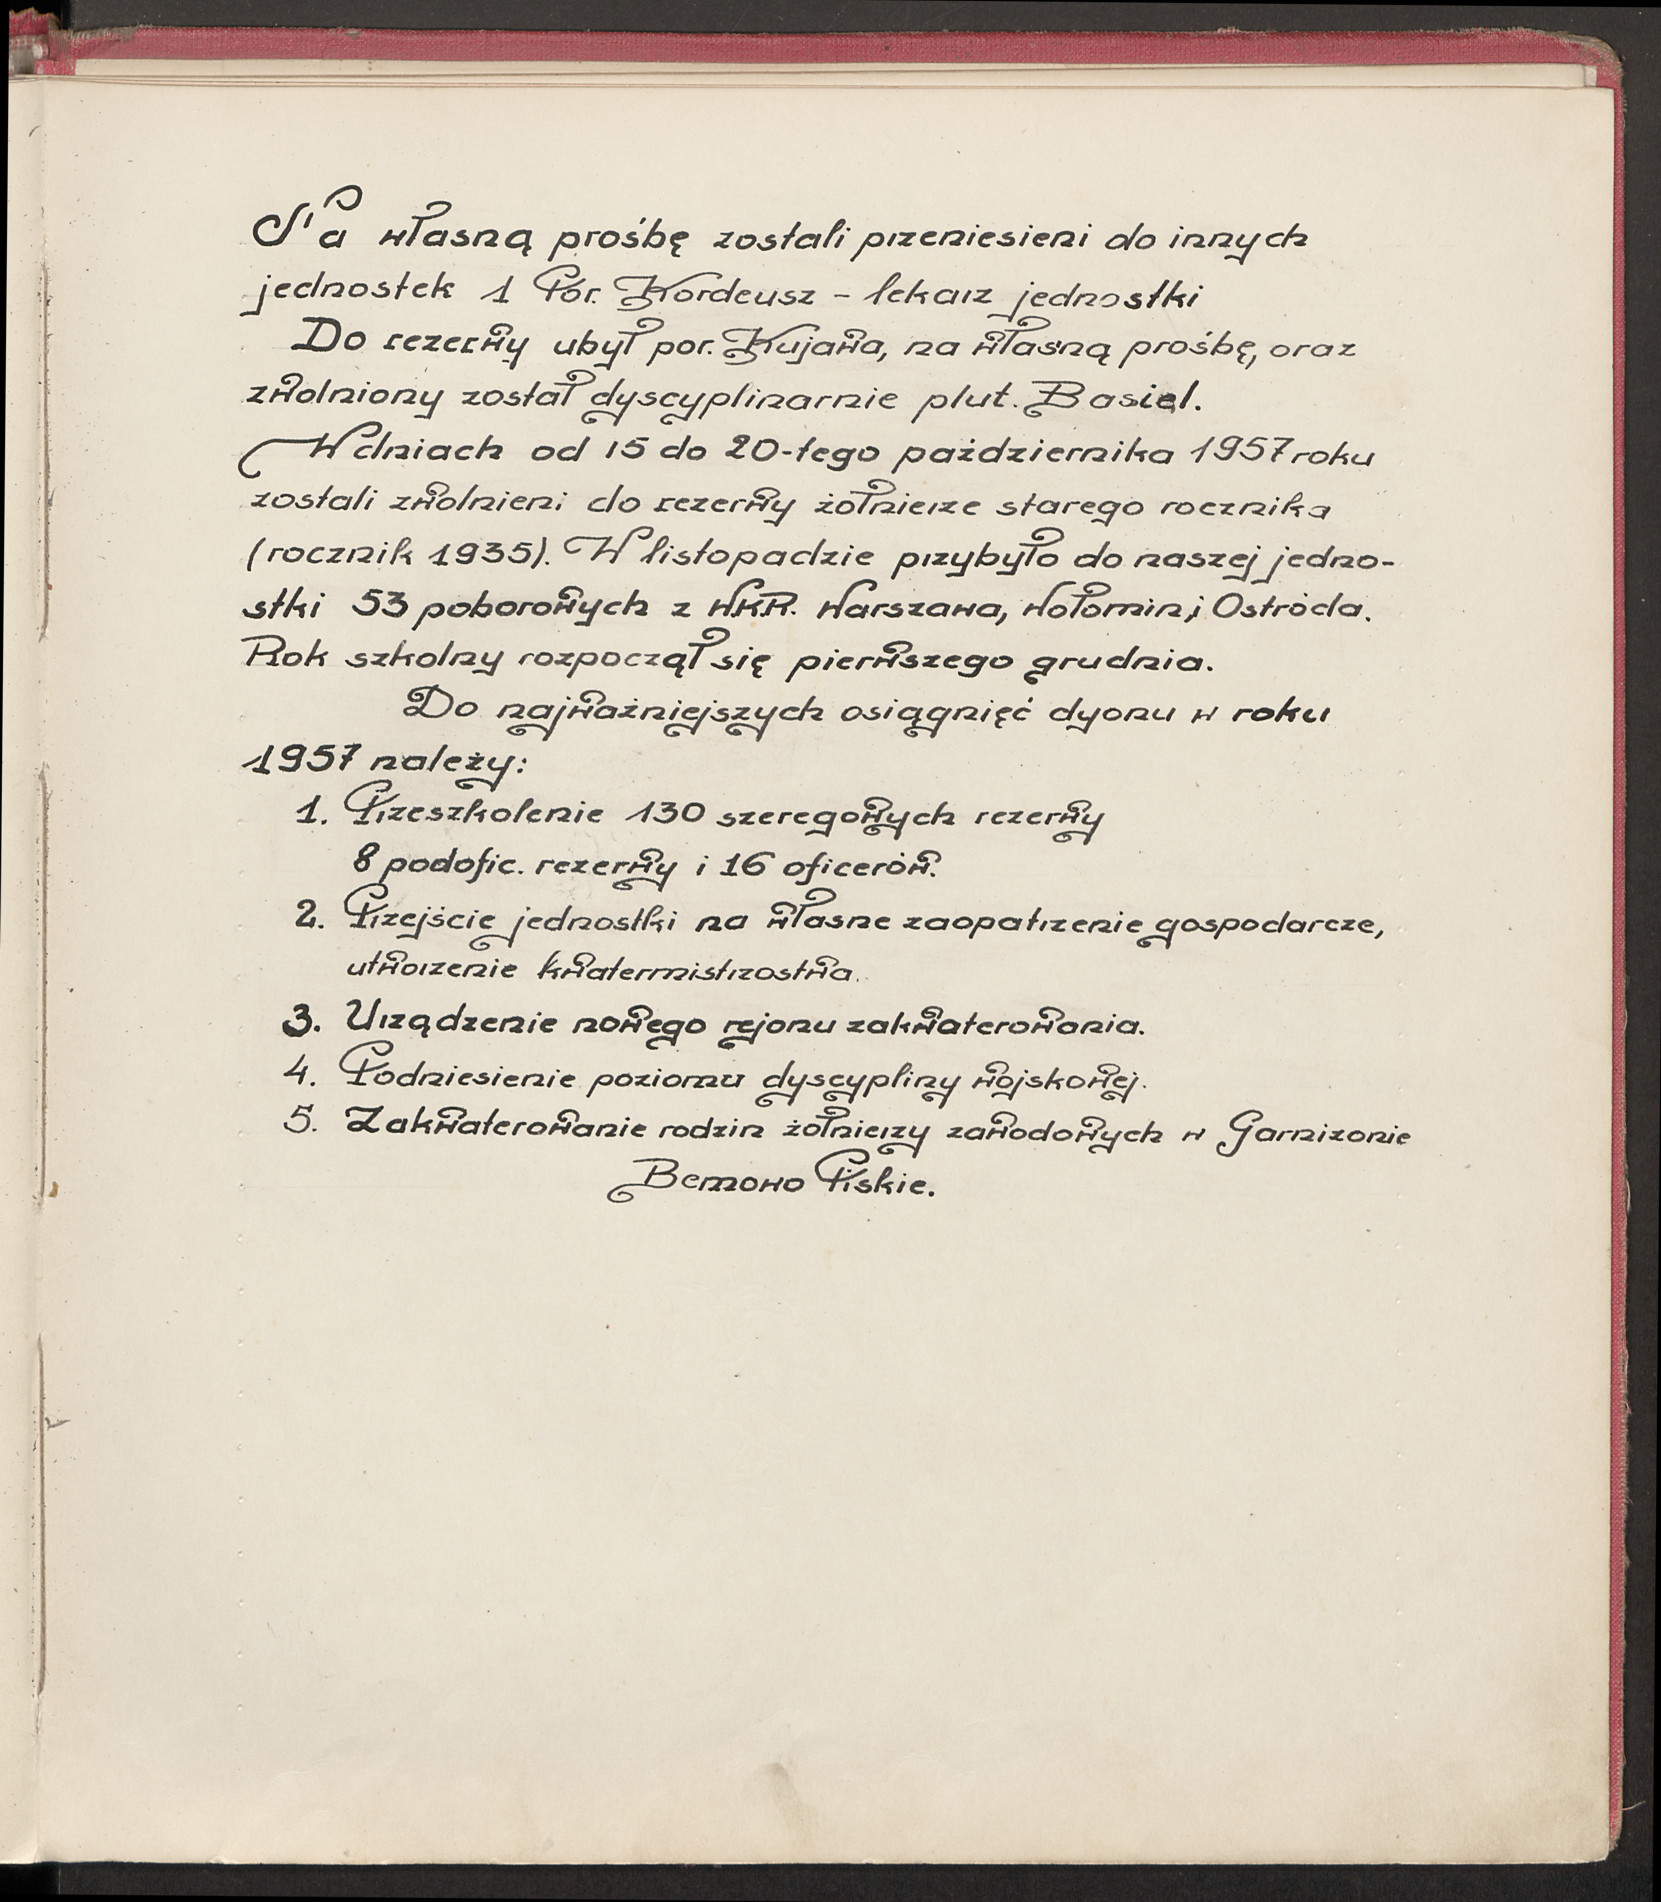 Na własną prośbę zostali przeniesieni do innych
jednostek 1 Por. Kordeusz - lekarz jednostki
Do rezerwy ubył por. Kujawa, na własną prośbę, oraz
zwolniony został dyscyplinarnie plut. Basiel.
W dniach od 15 do 20-tego października 1957 roku
zostali zwolnieni do rezerwy żołnierze starego rocznika
(rocznik 1935). W listopadzie przybyło do naszej jedno-
stki 53 poborowych z WKR. Warszawa, Wołomin, i Ostróda.
Rok szkolny rozpoczął się pierwszego grudnia.
Do najważniejszych osiągnięć dyonu w roku
1957 należy:
1. Przeszkolenie 130 szeregowych rezerwy
8 podofic. rezerwy i 16 oficerów.
2. Przejście jednostki na własne zaopatrzenie gospodarcze,
utworzenie kwatermistrzostwa.
3. Urządzenie nowego rejonu zakwaterowania.
4. Podniesienie poziomu dyscypliny wojskowej.
5. Zakwaterowanie rodzin żołnierzy zawodowych w Garnizonie
Bemowo Piskie.